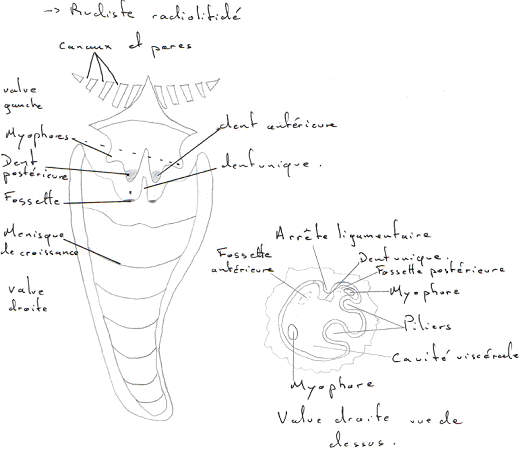 -> Rudiste radiolitidé
Canaux et pores
valve
gauche
Myophores
dent antérieure
Dent
postérieure
dent unique.
Fossette
Menisque
de croissance
valve
droite
Arrête ligamentaire
Fossette
antérieure
Dent unique.
Fossette postérieure
Myophore
Piliers
Cavité viscérale
Myophore
Valve droite vue de
dessus.